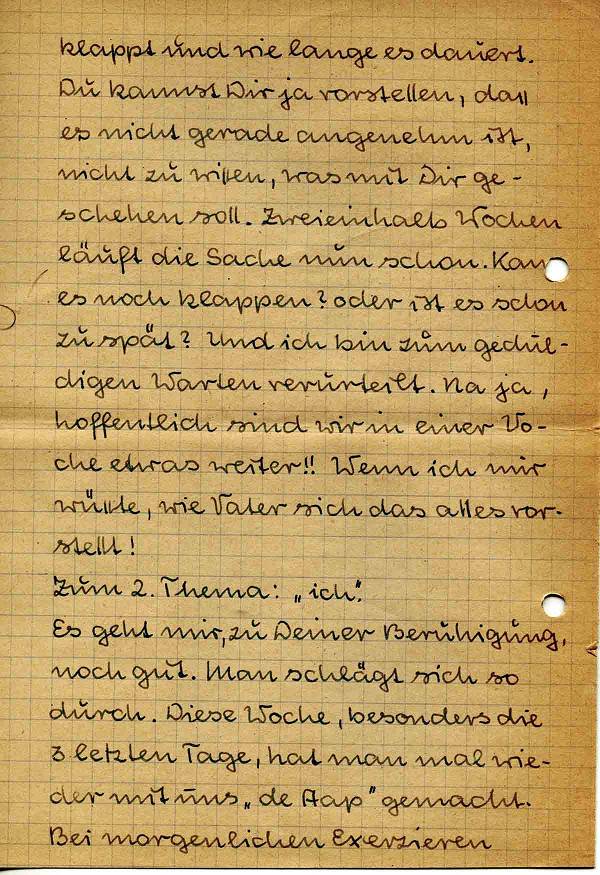 klappt und wie lange es dauert.
Du kannst Dir ja vorstellen, dass
es nicht gerade angenehm ist,
nicht zu wissen, was mit Dir ge-
schehen soll. Zweieinhalb Wochen
läuft die Sache nun schon. Kann
es noch klappen? oder ist es schon
zu spät? Und ich bin zum gedul-
digen Warten verurteilt. Na ja,
hoffentlich sind wir in einer Wo-
che etwas weiter!! Wenn ich nur
wüsste, wie Vater sich das alles vor-
stellt!
Zum 2. Thema: „ich".
Es geht mir, zu Deiner Beruhigung,
noch gut. Man schlägt sich so
durch. Diese Woche, besonders die
3 letzten Tage, hat man mal wie-
der mit uns „de Aap" gemacht.
Bei morgenlichen Exerzieren